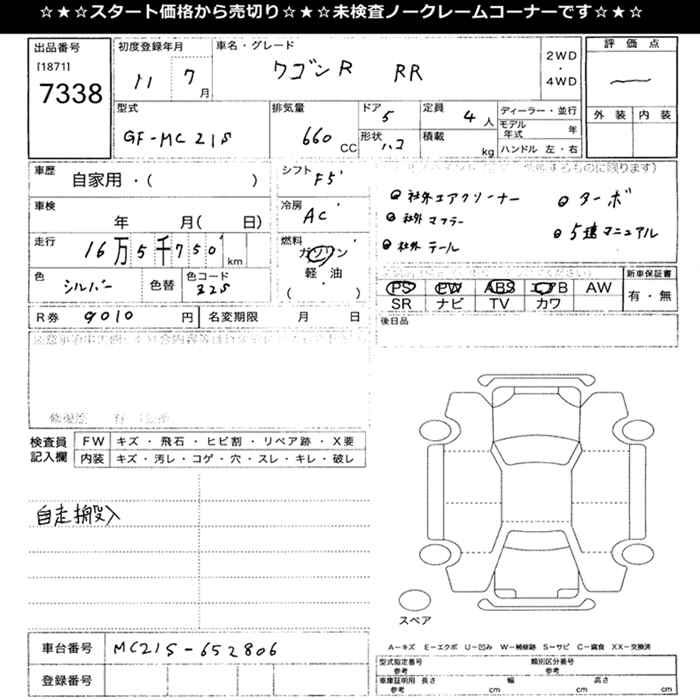 ☆★☆★スタート価格から売切り☆★☆★未検査ノークレームコーナーです☆★☆
出品番号
[1871]
7338
初度登録年月
11 7月
車名・グレード
ワゴンR RR
2WD
・
4WD
評価点
外装 内装
型式
GF-MC21S
排気量
660 CC
ドア
5
形状
ハコ
定員
4人
積載
kg
ディーラー・並行
モデル年式 年
ハンドル 左・右
車歴
自家用・( )
車検
年 月( 日)
走行
16万5千750 km
色
シルバー
色替
色コード
32S
シフト
F5
冷房
AC
燃料
ガソリン
軽油
・
( )
するものに限ります)
社外エアクリーナー
社外マフラー
社外テール
ターボ
5速マニュアル
PS PW ABS エアB AW
SR ナビ TV カワ
新車保証書
有・無
R券 9010 円
名変期限 月 日
後日品
検査員記入欄
FW キズ・飛石・ヒビ割・リペア跡・X要
内装 キズ・汚レ・コゲ・穴・スレ・キレ・破レ
自走搬入
スペア
車台番号 MC21S-652806
登録番号
A−キズ E−エクボ U−凹み W−補修跡 S−サビ C−腐食 XX−交換済
型式指定番号 参考
類別区分番号 参考
車庫証明用 参考
長さ cm
幅 cm
高さ cm